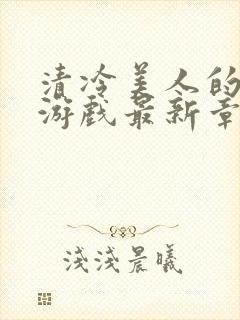 清冷美人的
游戏最新章
浅浅晨曦